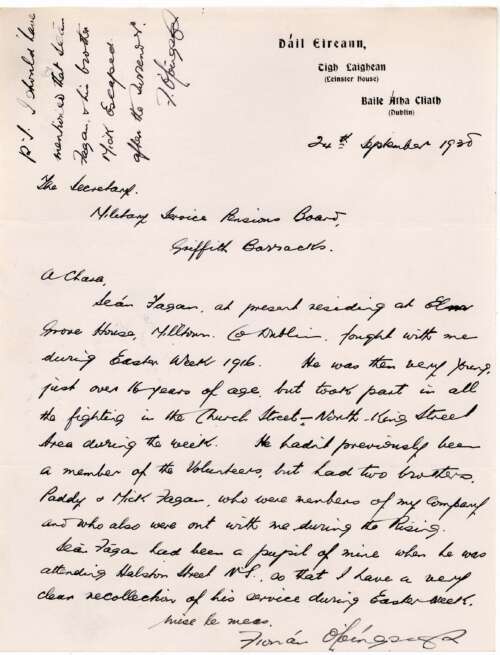 Dáil Eireann,
Tigh Laighean
(Leinster House)
Baile Átha Cliath
(Dublin)
24th September 1935
The Secretary.
Military Service Pensions Board,
Griffith Barracks.
A Chara,
Seán Fagan, at present residing at Elm
Grove House, Milltown. Co Dublin, fought with me
during Easter Week 1916. He was then very young,
just over 16 years of age, but took part in all
the fighting in the Church Street - North - King Street
Area during the week. He hadn't previously been
a member of the Volunteers, but had two brothers,
Paddy & Mick Fagan, who were members of my Company
and who also were out with me during the Rising.
Seán Fagan had been a pupil of mine when he was
attending Halston Street N.S., so that I have a very
clear recollection of his service during Easter Week.
Mise le meas.
Fionán
P.S. I should have
mentioned that Seán
Fagan & his brother
Mick Escaped
after the surrender.